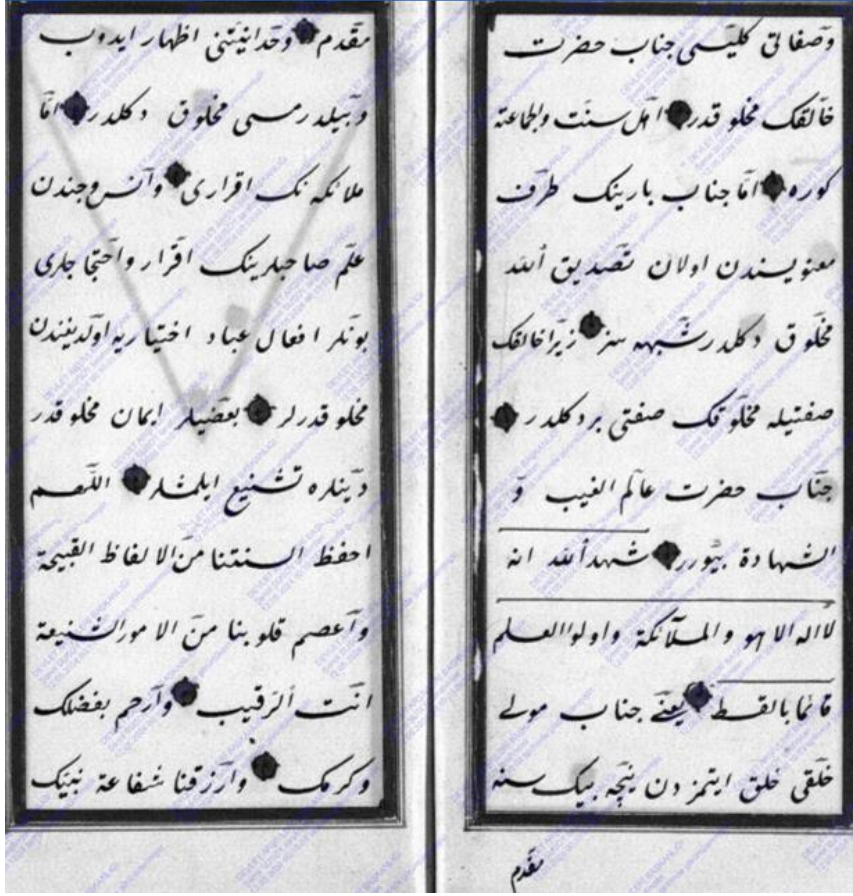 وصفاتى كليسى جناب حضرت
خالقك مخلوقدر اهل سنت والجماعة
كوره امّا جناب بارينك طرف
معنويسندن اولان تصديق الله
مخلوق دكلدر شبهه سز زيرا خالقك
صفتيله مخلوقك صفتى بر دكلدر
جناب حضرت عالم الغيب و
الشهادة بيورر شهد الله انه
لا اله الا هو والملآئكة واولوا العلم
قائما بالقسط يعنى جناب مولى
خلقى خلق ايتمزدن نيچه بيك سنه
مقدم
مقدم وحدانيتنى اظهار ايدوب
وبيلدرمسى مخلوق دكلدر امّا
ملائكه نك اقرارى وانس وجندن
علم صاحبلرينك اقرار واحتجاجارى
بونلر افعال عباد اختياريه اولديغندن
مخلوقدرلر بعضيلر ايمان مخلوقدر
دينلره تشنيع ايلمشلر اللهم
احفظ السنتنا من الالفاظ القبيحة
واعصم قلوبنا من الامور الشنيعة
انت الرقيب وارحم بفضلك
وكرمك وارزقنا شفاعة نبيك